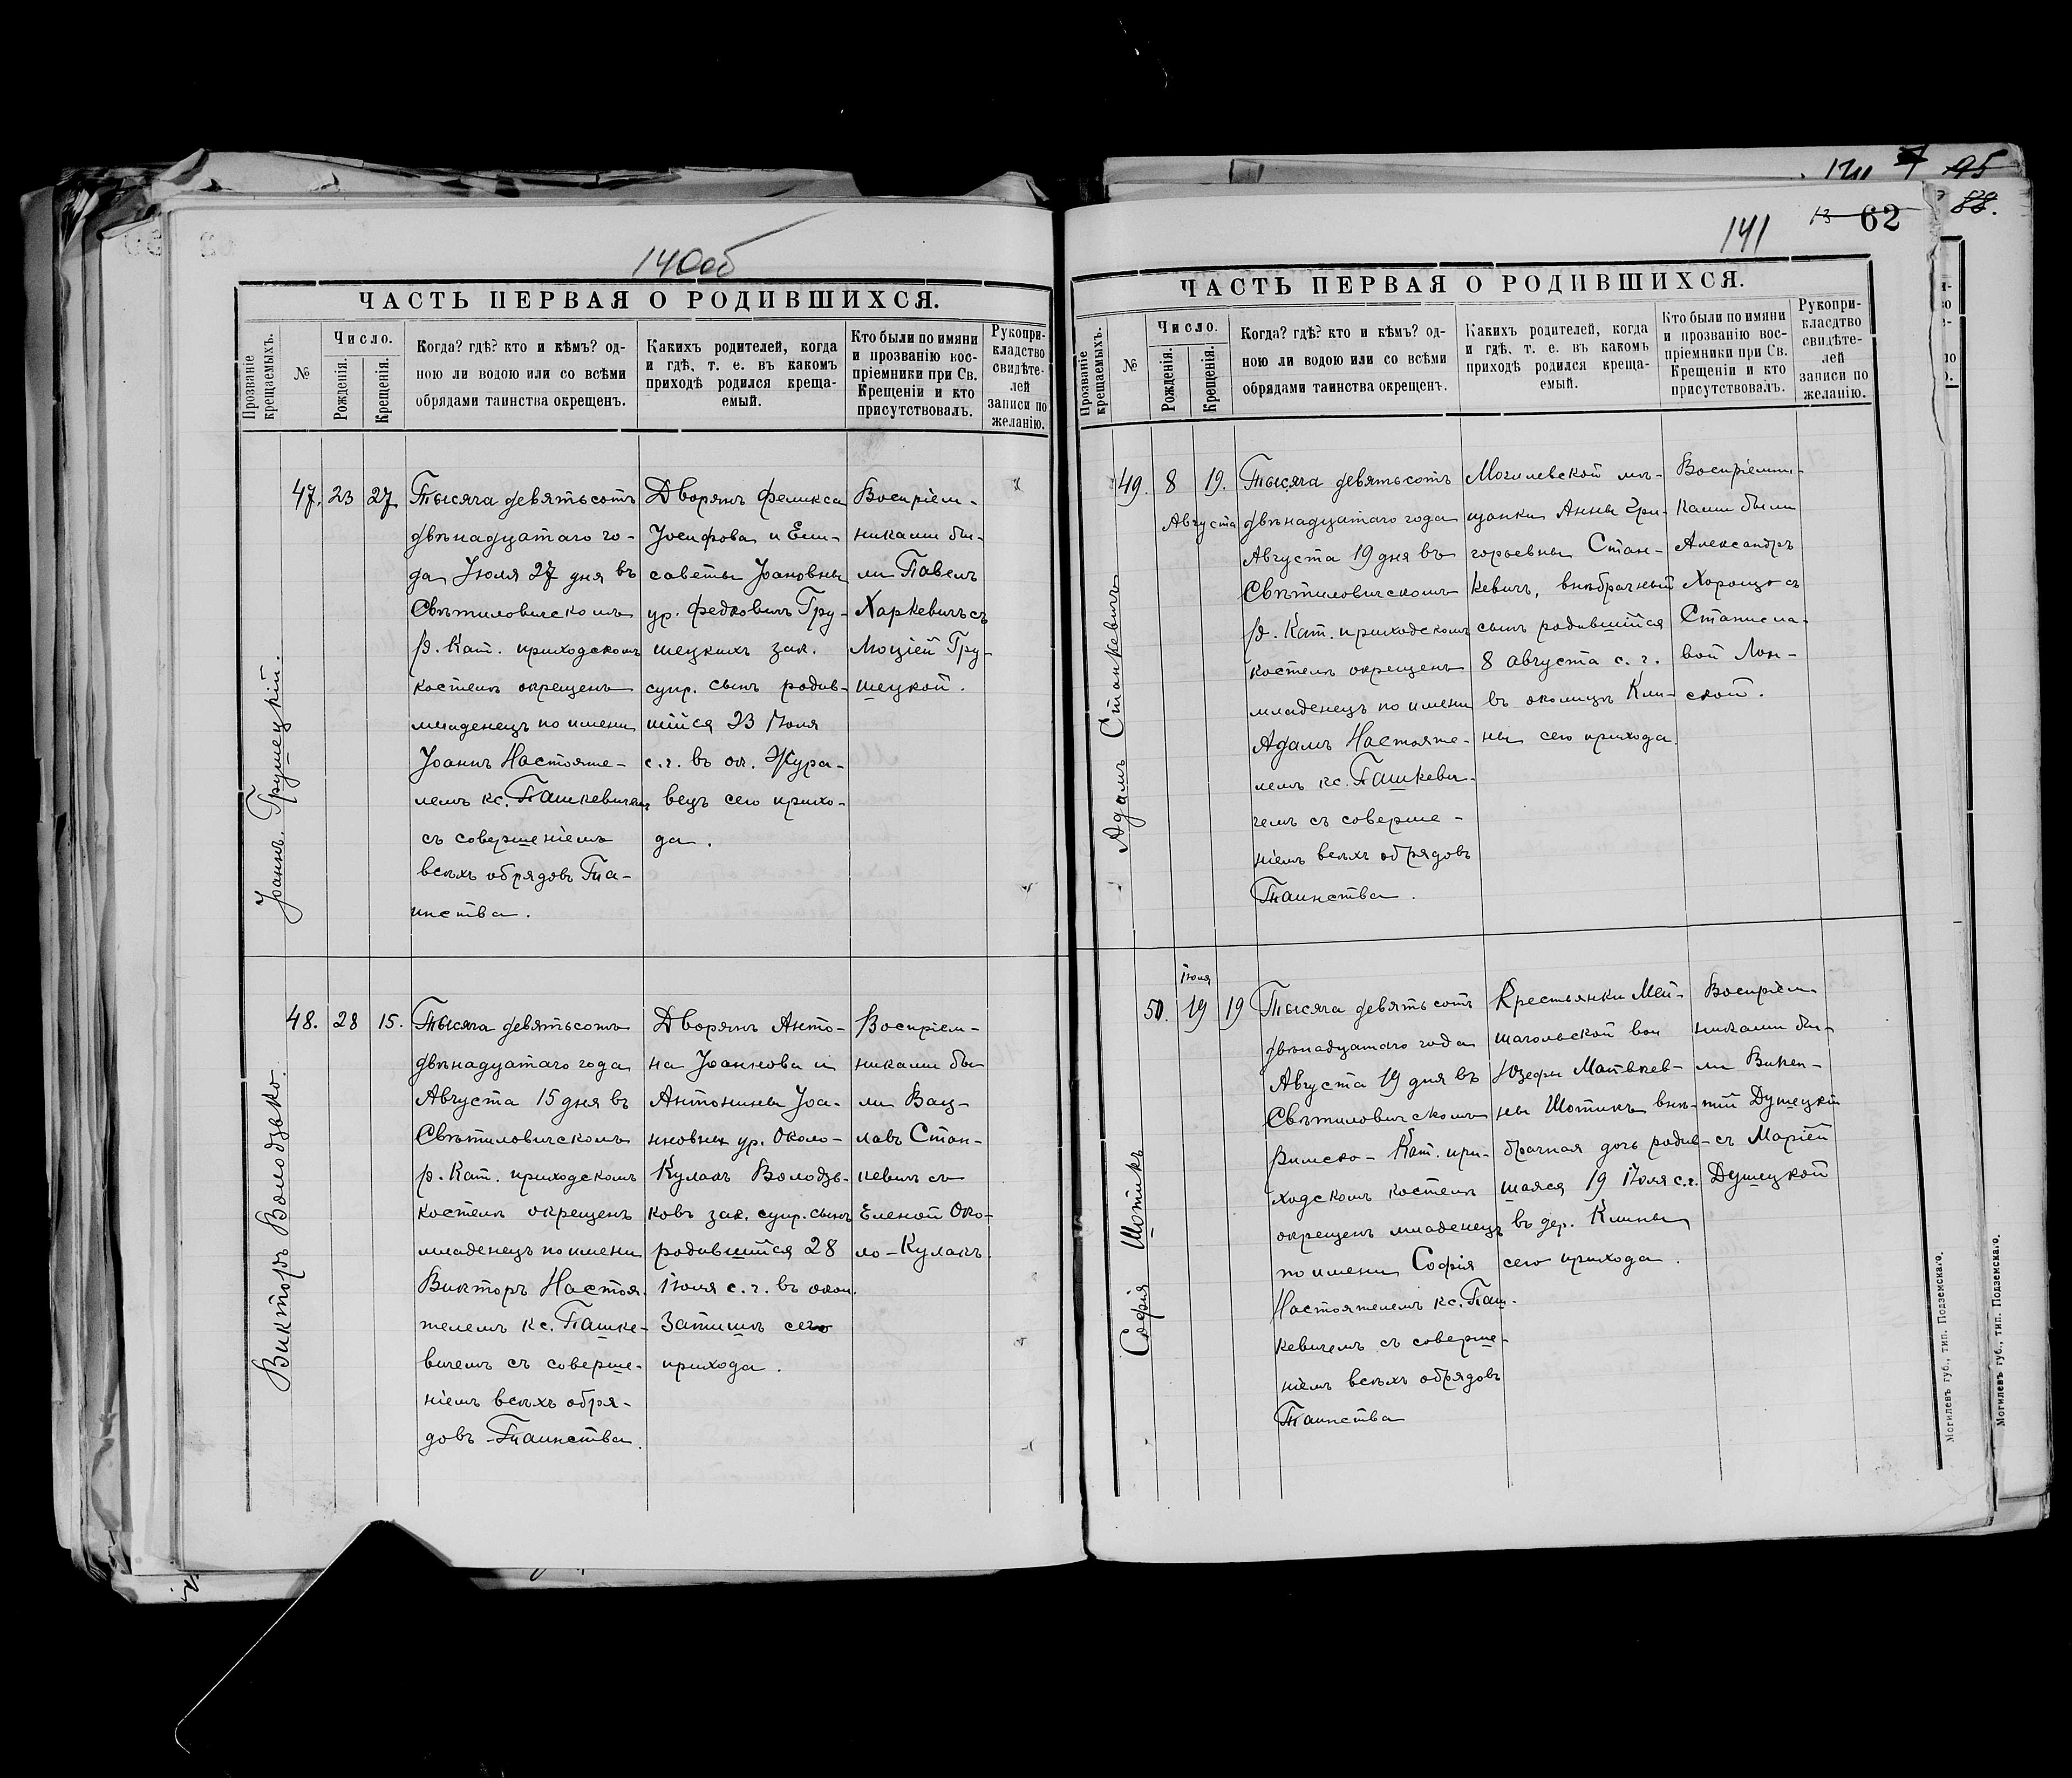 140об
ЧАСТЬ ПЕРВАЯ О РОДИВШИХСЯ.
Прозваніе крещаемыхъ.
№
Число.
Рожденія.
Крещенія.
Когда? гдѣ? кто и кѣмъ? од-
ною ли водою или со всѣми
обрядами таинства окрещенъ.
Какихъ родителей, когда
и гдѣ, т. е. въ какомъ
приходѣ родился креща-
емый.
Кто были по имяни
и прозванію вос-
пріемники при Св.
Крещеніи и кто
присутствовалъ.
Рукопри-
кладство
свидѣте-
лей
записи по
желанію.
Іоаннъ Грушецкій.
47.
23
27
Тысяча девятьсотъ
двѣнадцатаго го-
да Іюля 27 дня въ
Свѣтиловичскомъ
р. Кат. приходскомъ
костелѣ окрещенъ
младенецъ по имени
Іоаннъ Настояте-
лемъ кс. Пашкевичемъ
съ совершеніемъ
всѣхъ обрядовъ Та-
инства.
Дворянъ Феликса
Іосифова и Ели-
саветы Іоановны
ур. Федковичъ Гру-
шецкихъ зак.
супр. сынъ родив-
шійся 23 Іюля
с. г. въ ок. Жура-
вецъ сего прихо-
да.
Воспріем-
никами бы-
ли Павелъ
Харкевичъ съ
Люціей Гру-
шецкой.
Викторъ Володзько.
48.
28
15.
Тысяча девятьсотъ
двѣнадцатаго года
Августа 15 дня въ
Свѣтиловичскомъ
р. Кат. приходскомъ
костелѣ окрещенъ
младенецъ по имени
Викторъ Настоя-
телемъ кс. Пашке-
вичемъ съ соверше-
ніемъ всѣхъ обря-
довъ Таинства.
Дворянъ Анто-
на Іоаннова и
Антонины Іоа-
нновны ур. Около-
Кулакъ Володзь-
ковъ зак. супр. сынъ
родившійся 28
Іюля с. г. въ окол.
Затишъ сего
прихода.
Воспріем-
никами бы
ли Вац-
лавъ Стан-
кевичъ съ
Еленой Око-
ло-Кулакъ.
141
13 62
ЧАСТЬ ПЕРВАЯ О РОДИВШИХСЯ.
Прозваніе крещаемыхъ.
№
Число.
Рожденія.
Крещенія.
Когда? гдѣ? кто и кѣмъ? од-
ною ли водою или со всѣми
обрядами таинства окрещенъ.
Какихъ родителей, когда
и гдѣ. т. е. въ какомъ
приходѣ родился креща-
емый.
Кто были по имяни
и прозванію вос-
пріемники при Св.
Крещеніи и кто
присутствовалъ.
Рукопри-
класдтво
свидѣте-
лей
записи по
желанію.
Адамъ Станкевичъ
49.
8
Августа
19.
Тысяча девятьсотъ
двѣнадцатаго года
Августа 19 дня въ
Свѣтиловичскомъ
р. Кат. приходскомъ
костелѣ окрещенъ
младенецъ по имени
Адамъ Настояте-
лемъ кс. Пашкеви-
чемъ съ соверше-
ніемъ всѣхъ обрядовъ
Таинства.
Могилевской мѣ-
щанки Анны Гри-
горьевны Стан-
кевичъ, внѣбрачный
сынъ родившійся
8 августа с. г.
въ околицѣ Кли-
ны сего прихода.
Воспріемни-
ками были
Александръ
Хорощо съ
Станисла-
вой Лон-
ской.
Софія Шотикъ
50.
Іюля
19
19
Тысяча девятьсотъ
двѣнадцатаго года
Августа 19 дня въ
Свѣтиловичскомъ
Римско-Кат. при-
ходскомъ костелѣ
окрещенъ младенецъ
по имени Софія
Настоятелемъ кс. Паш-
кевичемъ съ соверше-
ніемъ всѣхъ обрядовъ
Таинства
Крестьянки Мей-
шагольской вол
Юзефы Матвѣев-
ны Шотикъ внѣ-
брачная дочь родив-
шаяся 19 Іюля с. г.
въ дер. Клины
сего прихода.
Воспріем-
никами бы-
ли Викен-
тій Душецкій
съ Маріей
Душецкой
Могилевъ губ., тип. Подземскаго.
Могилевъ губ., тип. Подземскаго.
88.